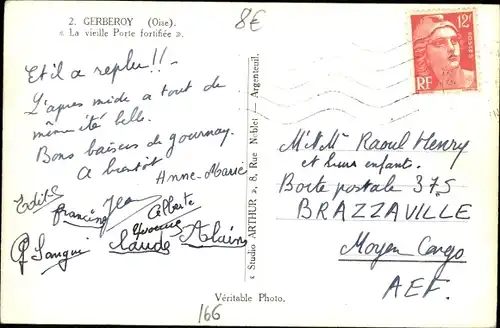 2. GERBEROY (Oise).
« La vieille Porte fortifiée ».
8€
12F
POSTES
RF
Et il a replu!!-
L'après midi a tout de
même été belle.
Bons baisers de gournay.
A bientôt
Anne-Marie
Edith
francine Jean Alberte
Yvonne
Claude Alain
M. et Mme Raoul Henry
et leurs enfants.
Boite postale 375
BRAZZAVILLE
Moyen Congo
AEF.
« Studio ARTHUR », 8, Rue Noblet — Argenteuil.
Véritable Photo.
166